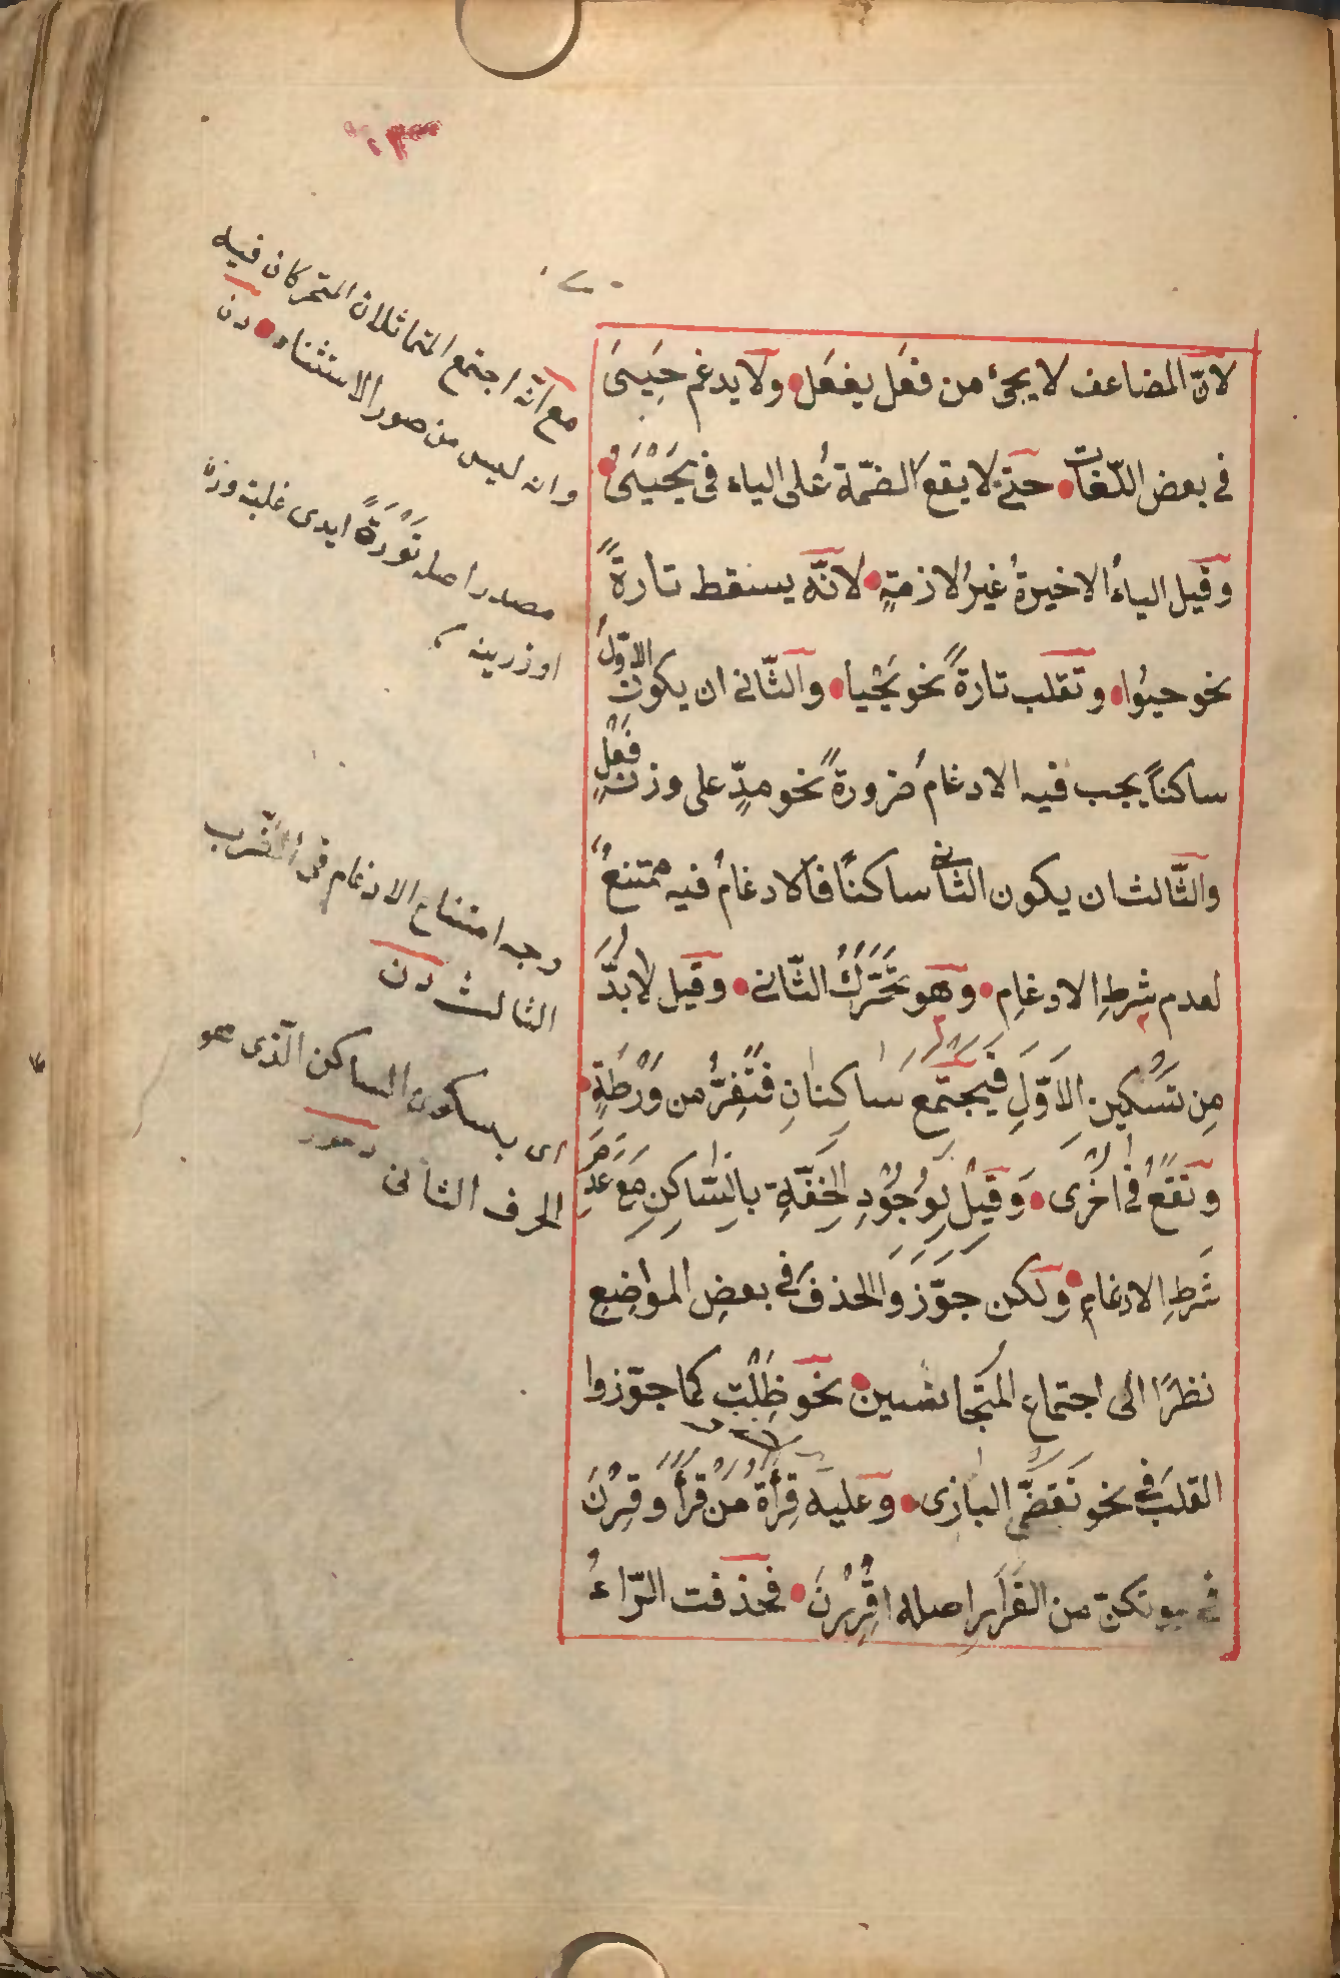 لانّ المضاعف لا يجئ من فعَل يفعَل ولا يدغم حَيِىَ
فى بعض اللّغات حتى لا يقع الضمّة على الياء فى يَحْيَىُ
وقيل الياءُ الاخيرةُ غيرُ لازمةٍ لانّه يسقط تارةً
نحو حيوُا وتقلب تارةً نحو يَحْيا والثّانى ان يكون الاوّلُ
ساكناً يجب فيه الادغامُ ضرورةً نحو مدٍّ على وزن فَعْلٍ
والثّالث ان يكون الثانى ساكنًا فالادغامُ فيه ممتنعٌ
لعدم شرطِ الادغامِ وهو تَحَرُّكُ الثّانى وقيل لا بدَّ
مِن تَسْكينِ الاَوّلِ فَيَجْتَمع سَاكِنانِ فَتَفِرُّ من وَرْطَةٍ
وتَقَعُ فى اُخْرى وَقيلَ لِوُجُودِ الخفّةِ بالسّاكنِ مَعَ عَدَمِ
شَرطِ الادغامِ ولكن جوّزوا الحذفَ فى بعضِ المواضِعِ
نظرًا الى اجتماعِ المتجانسين نحو ظَِلْت كما جوّزوا
القلبَ فى نحو تَقَضَّى البازى وعليه قِرأة مَنْ قرأ وقِرْنَ
فى بيوتكنّ من القَرَارِ اصله اِقْرِرْنَ فحذفت الرّاءُ
مع انّه اجتمع المتماثلان المتحركان فيه
وانه ليس من صور الاستثناء دن
مصدر اصله تَوْرَةً ايدى غلبه وزن
اوزرينه
وجه امتناع الادغام فى الضّرب
الثالث دن
اى بسكون الساكن الّذى هو
الحرف الثانى